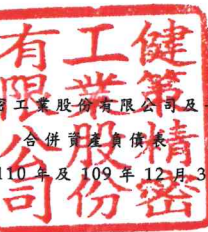 健第精密
工業股份
有限公司
工業股份有限公司及
合併資產負債表
110 年及 109 年 12 月 3